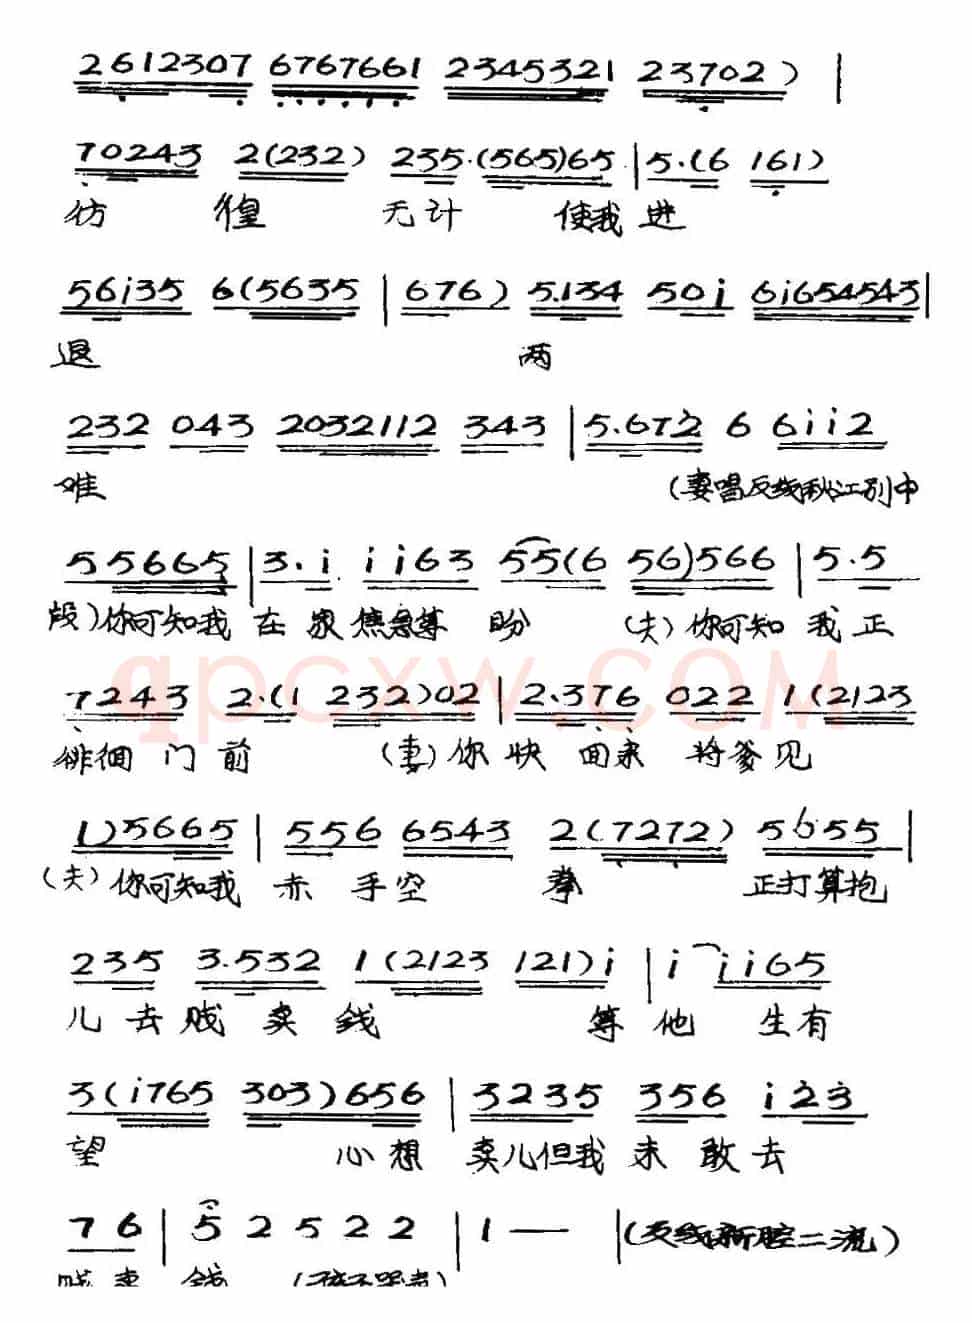 2612307 67676661 23453321 23702) |
70243 2(232) 235·(565)65 | 5·(6 161)
彷 徨 无计 使我 进
56i35 6(5635 | 676) 5.134 50i 6i654543 |
退 两
232 043 2032112 343 | 5.672 6 6ii2
难 (妻唱反线秋江别中
55665 | 3.i ii63 55(6 56)566 | 5.5
段)你可知我 在 家 焦急等 盼 (夫)你可知 我 正
7243 2·(1 232)02 | 2.376 022 1(2123
徘徊 门 前 (妻)你 快 回来 将爹见
1)5665 | 556 6543 2(7272) 5655 |
(夫)你可知我 赤 手空 拳 正打算抱
235 3.532 1(2123 121)i | i ii65
儿 去 贱 卖 钱 等 他 生 有
3(i765 303)656 | 3235 356 i23
望 心 想 卖儿但我 未 敢 去
76 | 5 2 5 2 2 | 1 — | (反线新腔二流)
贱 卖 钱
qpcxw.com